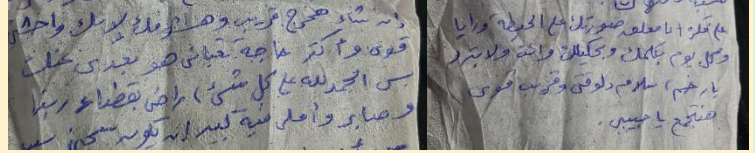 إن شاء هخرج قريب وهشوفك لإنك واحشني
قوى وأكتر حاجة تعبانى هو بعدى عنك
بس الحمد لله على كل شئ، راضى بقضاء ربنا
وصابر وأملى فيه كبير إن تكون
على فكرة أنا معلق صورتك على الحيطة ورايا
وكل يوم بكلمك وبحكيلك وانت ولا بترد
يا رخم، سلام دلوقتى وقريب قوى
هنتجمع يا حبيبى.